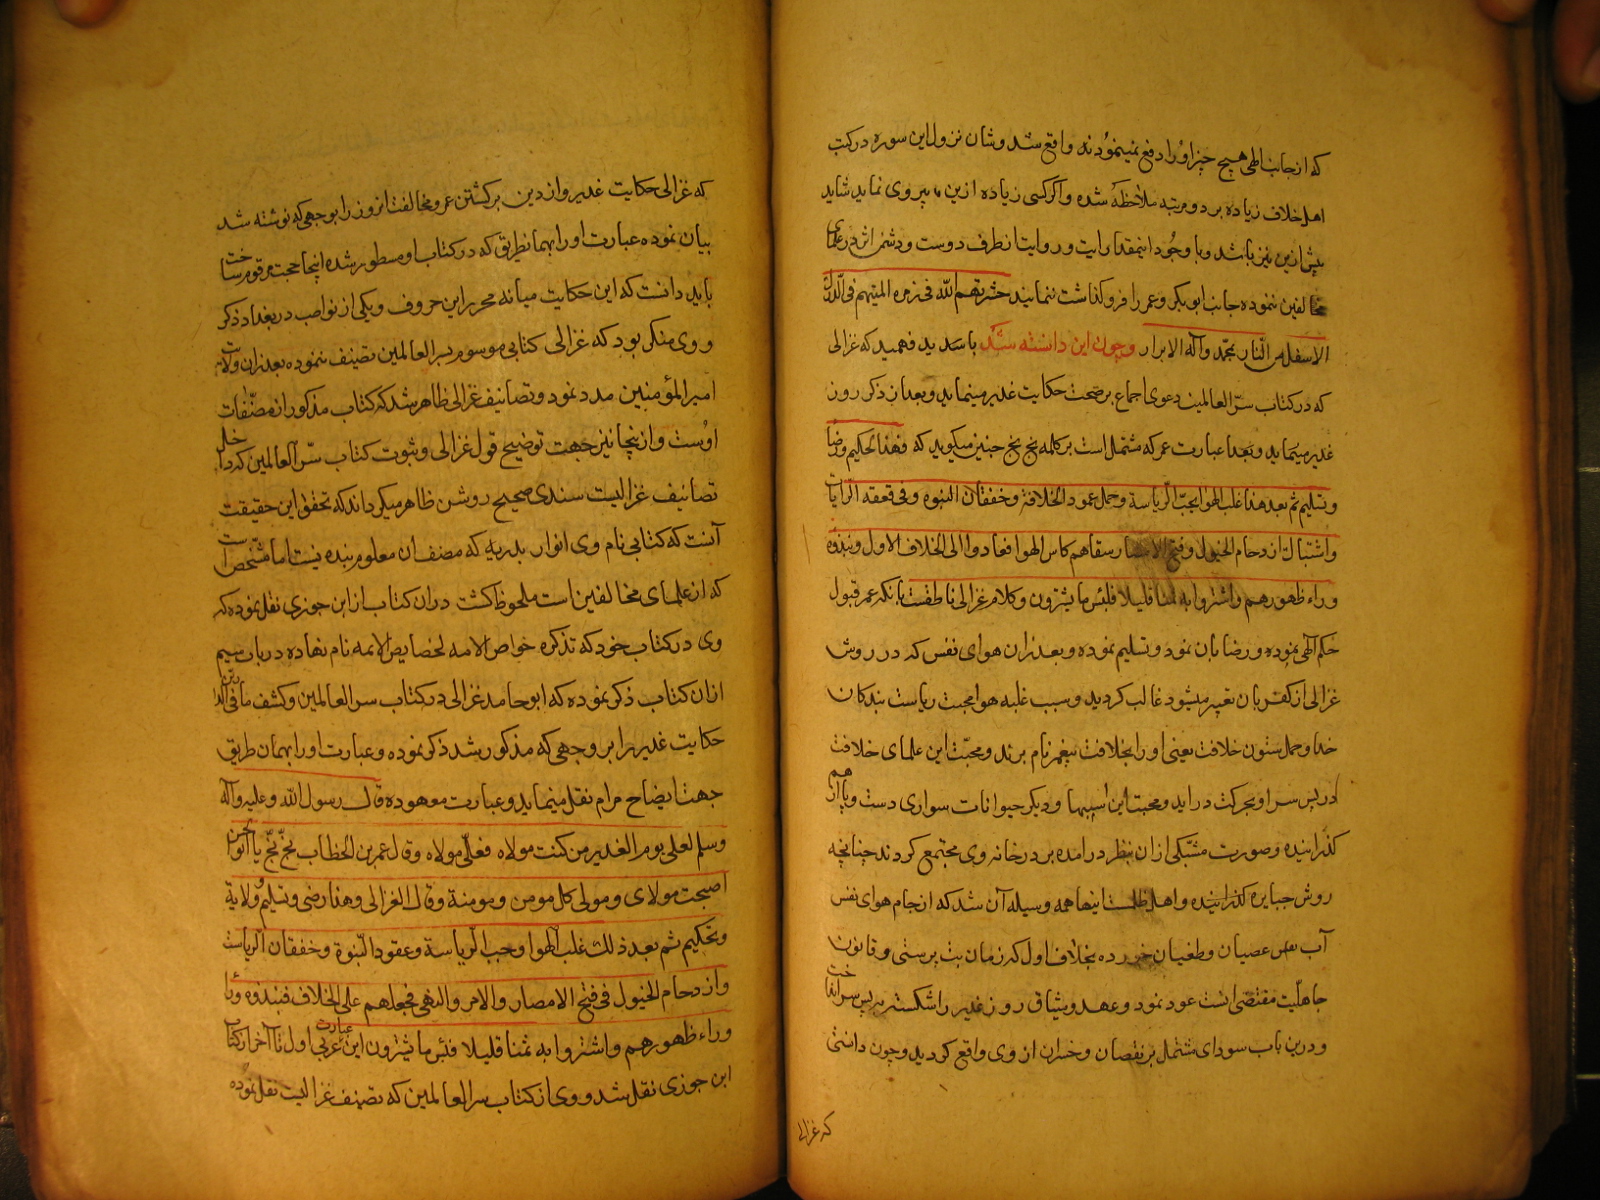 که از جانب الهی هیچ چیز او را دفع نمینمودنه واقع شد و شان نزول این سوره در کتب
اهل خلاف زیاده بر دو مرتبه ملاحظه شده و اگر کسی زیاده ازین پیروی نماید شاید
بیش ازین نیز باشد و با وجود اینمقدار ایت و روایت از طرف دوست و دشمن اثر در علمای
مخالفین ننموده جانب ابوبکر و عمر را فروگذاشت ننمایند حشرتهم الله فی زمره المیتهم فی الدرک
الاسفل من النار بمحمد وآله الابرار وچون این دانسته شد باید فهمید که غزالی
که در کتاب سرّ العالمین دعوی اجماع بر صحت حکایت غدیر مینماید و بعد از ذکر روز
غدیر مینماید و بعد از عبارت عمر که مشتمل است بر کلمه بخ بخ چنین میکوید که فهذا تحکیم ورضا
وتسلیم ثم بعد هذا غلب الهوا بحبّ الریاسة وحمل عمود الخلافة وخفقان النبوه وفی قعقعه الرایات
واشتباک ازدحام الخیول وفتح الامصار سقاهم کاس الهوا فعادوا الی الخلاف الاول ونبذوه
وراء ظهورهم واشتروا به ثمنا قلیلا فلبئس ما یشترون وکلام غزالی ناطقست بانکه عمر قبول
حکم الهی نموده و رضا بان نمود و تسلیم نموده و بعد زان هوای نفس که در روش
غزالی از کفر بان تعبیر میشود غالب کردید و سبب غلبه هوا محبت ریاست بندکان
خدا و حمل ستون خلافت یعنی او را بخلافت پیغمبر نام برند و محبّت این علمای خلافت
در پس سر او بحرکت دراید و محبت این اسپها و دیکر حیوانات سواری دست و پا از هم
کذرانیده و صورت مشبّکی ازان بنظر درامده بر در خانه وی مجتمع کردند چنانچه
روش جبابره کذرانیده و اهل اینها همه وسیله آن شد که از جام هوای نفس
آب عصیان و طغیان خورده بخلاف اول که زمان بت پرستی و قانون
جاهلیت مقتضی انست عود نمود و عهد و میثاق روز غدیر را شکسته در پس سر انداخت
و درین باب سودای مشتمل بر نقصان و خسران از وی واقع کردید و چون دانستی
که غزالی
که غزالی حکایت غدیر و از دین برکشتن عمر و مخالفت انروز را بوجهی که نوشته شد
بیان نموده عبارت او را بهمانطریق که در کتاب او مسطور شده اینجا حجت مرقوم ساخت
باید دانست که این حکایت میانه محرر این حروف و یکی از نواصب در بغداد ذکر
و وی منکر بود که غزالی کتابی موسوم بسر العالمین تصنیف ننموده بعد زان ولایت
امیر المؤمنین مدد نمود و تصانیف غزالی ظاهر شد که کتاب مذکور از مصنّفات
اوست و از ینجا نیز جهت توضیح قول غزالی و ثبوت کتاب سرّ العالمین که داخل
تصانیف غزالیست سندی صحیح روشن ظاهر میکرداند که تحقیق این حقیقت
آنست که کتابی نام وی انوار بدریه که مصنف ان معلوم بنده نیست اما مشخص است
که از علمای مخالفین است ملحوظ کشت دران کتاب از ابن جوزی نقل نموده که
وی در کتاب خود که تذکره خواص الامه لخصایص الایمه نام نهاده در باب سیم
ازان کتاب ذکر نموده که ابو حامد غزالی در کتاب سر العالمین و کشف ما فی الدارین
حکایت غدیر را بر وجهی که مذکور شد ذکر نموده و عبارت او را بهمان طریق
جهت ایضاح مرام نقل مینماید و عبارت موعوده قال رسول الله وعلیه وآله
وسلم لعلی یوم الغدیر من کنت مولاه فعلی مولاه وقال عمر بن الخطاب بخّ بخّ یا ابو الحسن
اصبحت مولای ومولی کل مومن ومومنة وقال الغزالی وهذا رضی وتسلیم وولایة
وتحکیم ثم بعد ذلک غلب الهوا وحب الریاسة وعقود النبوة وخفقان الریاسات
وازدحام الخیول فی فتح الامصار والامر والنهی فجعلهم علی الخلاف فنبذوه
وراء ظهورهم واشتروا به ثمنا قلیلا فلبئس ما یشترون این عبارت عربی اول تا آخر از کتاب
ابن جوزی نقل شد و وی از کتاب سر العالمین که تصنیف غزالیست نقل نموده